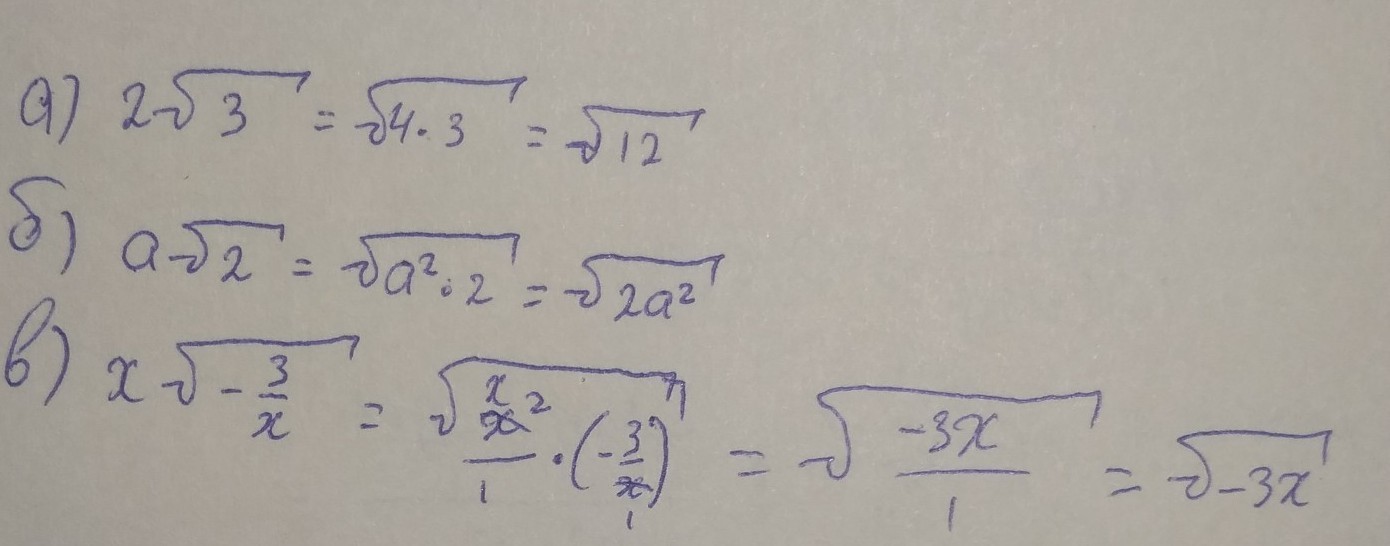 а) 2√3 = √4·3 = √12
б) a√2 = √a²·2 = √2a²
в) x√-3/x = √x²/1·(-3/x) = √-3x/1 = √-3x